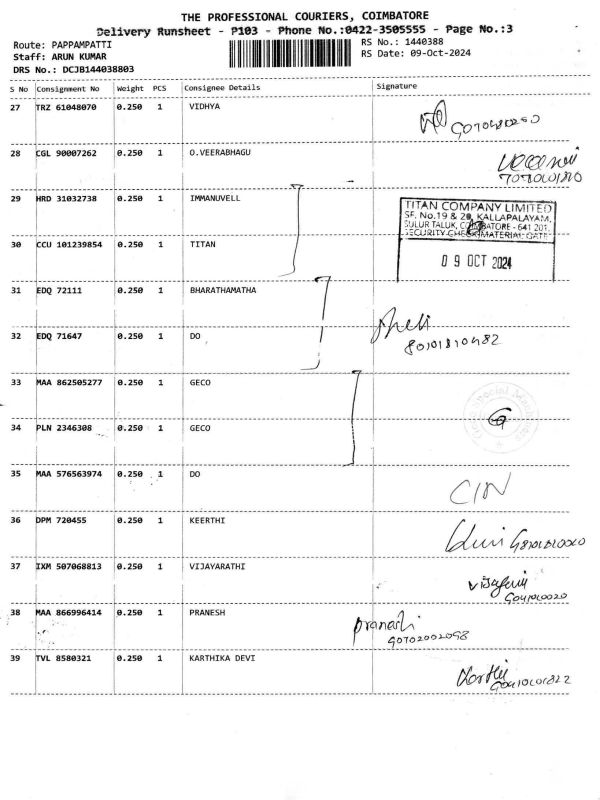 THE PROFESSIONAL COURIERS, COIMBATORE
Delivery Runsheet - P103 - Phone No.:0422-3505555 - Page No.:3
Route: PAPPAMPATTI
RS No.: 1440388
Staff: ARUN KUMAR
RS Date: 09-Oct-2024
DRS No.: DCJB144038803
S No Consignment No Weight PCS Consignee Details Signature
27 TRZ 61048070 0.250 1 VIDHYA
28 CGL 90007262 0.250 1 O.VEERABHAGU
29 HRD 31032738 0.250 1 IMMANUVELL
TITAN COMPANY LIMITED
SF. No.19 & 20, KALLAPALAYAM,
SULUR TALUK, COIMBATORE - 641 201.
SECURITY CHECK MATERIAL GATE
30 CCU 101239854 0.250 1 TITAN
09 OCT 2024
31 EDQ 72111 0.250 1 BHARATHAMATHA
32 EDQ 71647 0.250 1 DO
33 MAA 862505277 0.250 1 GECO
34 PLN 2346308 0.250 1 GECO
35 MAA 576563974 0.250 1 DO
36 DPM 720455 0.250 1 KEERTHI
37 IXM 507068813 0.250 1 VIJAYARATHI
38 MAA 866996414 0.250 1 PRANESH
39 TVL 8580321 0.250 1 KARTHIKA DEVI